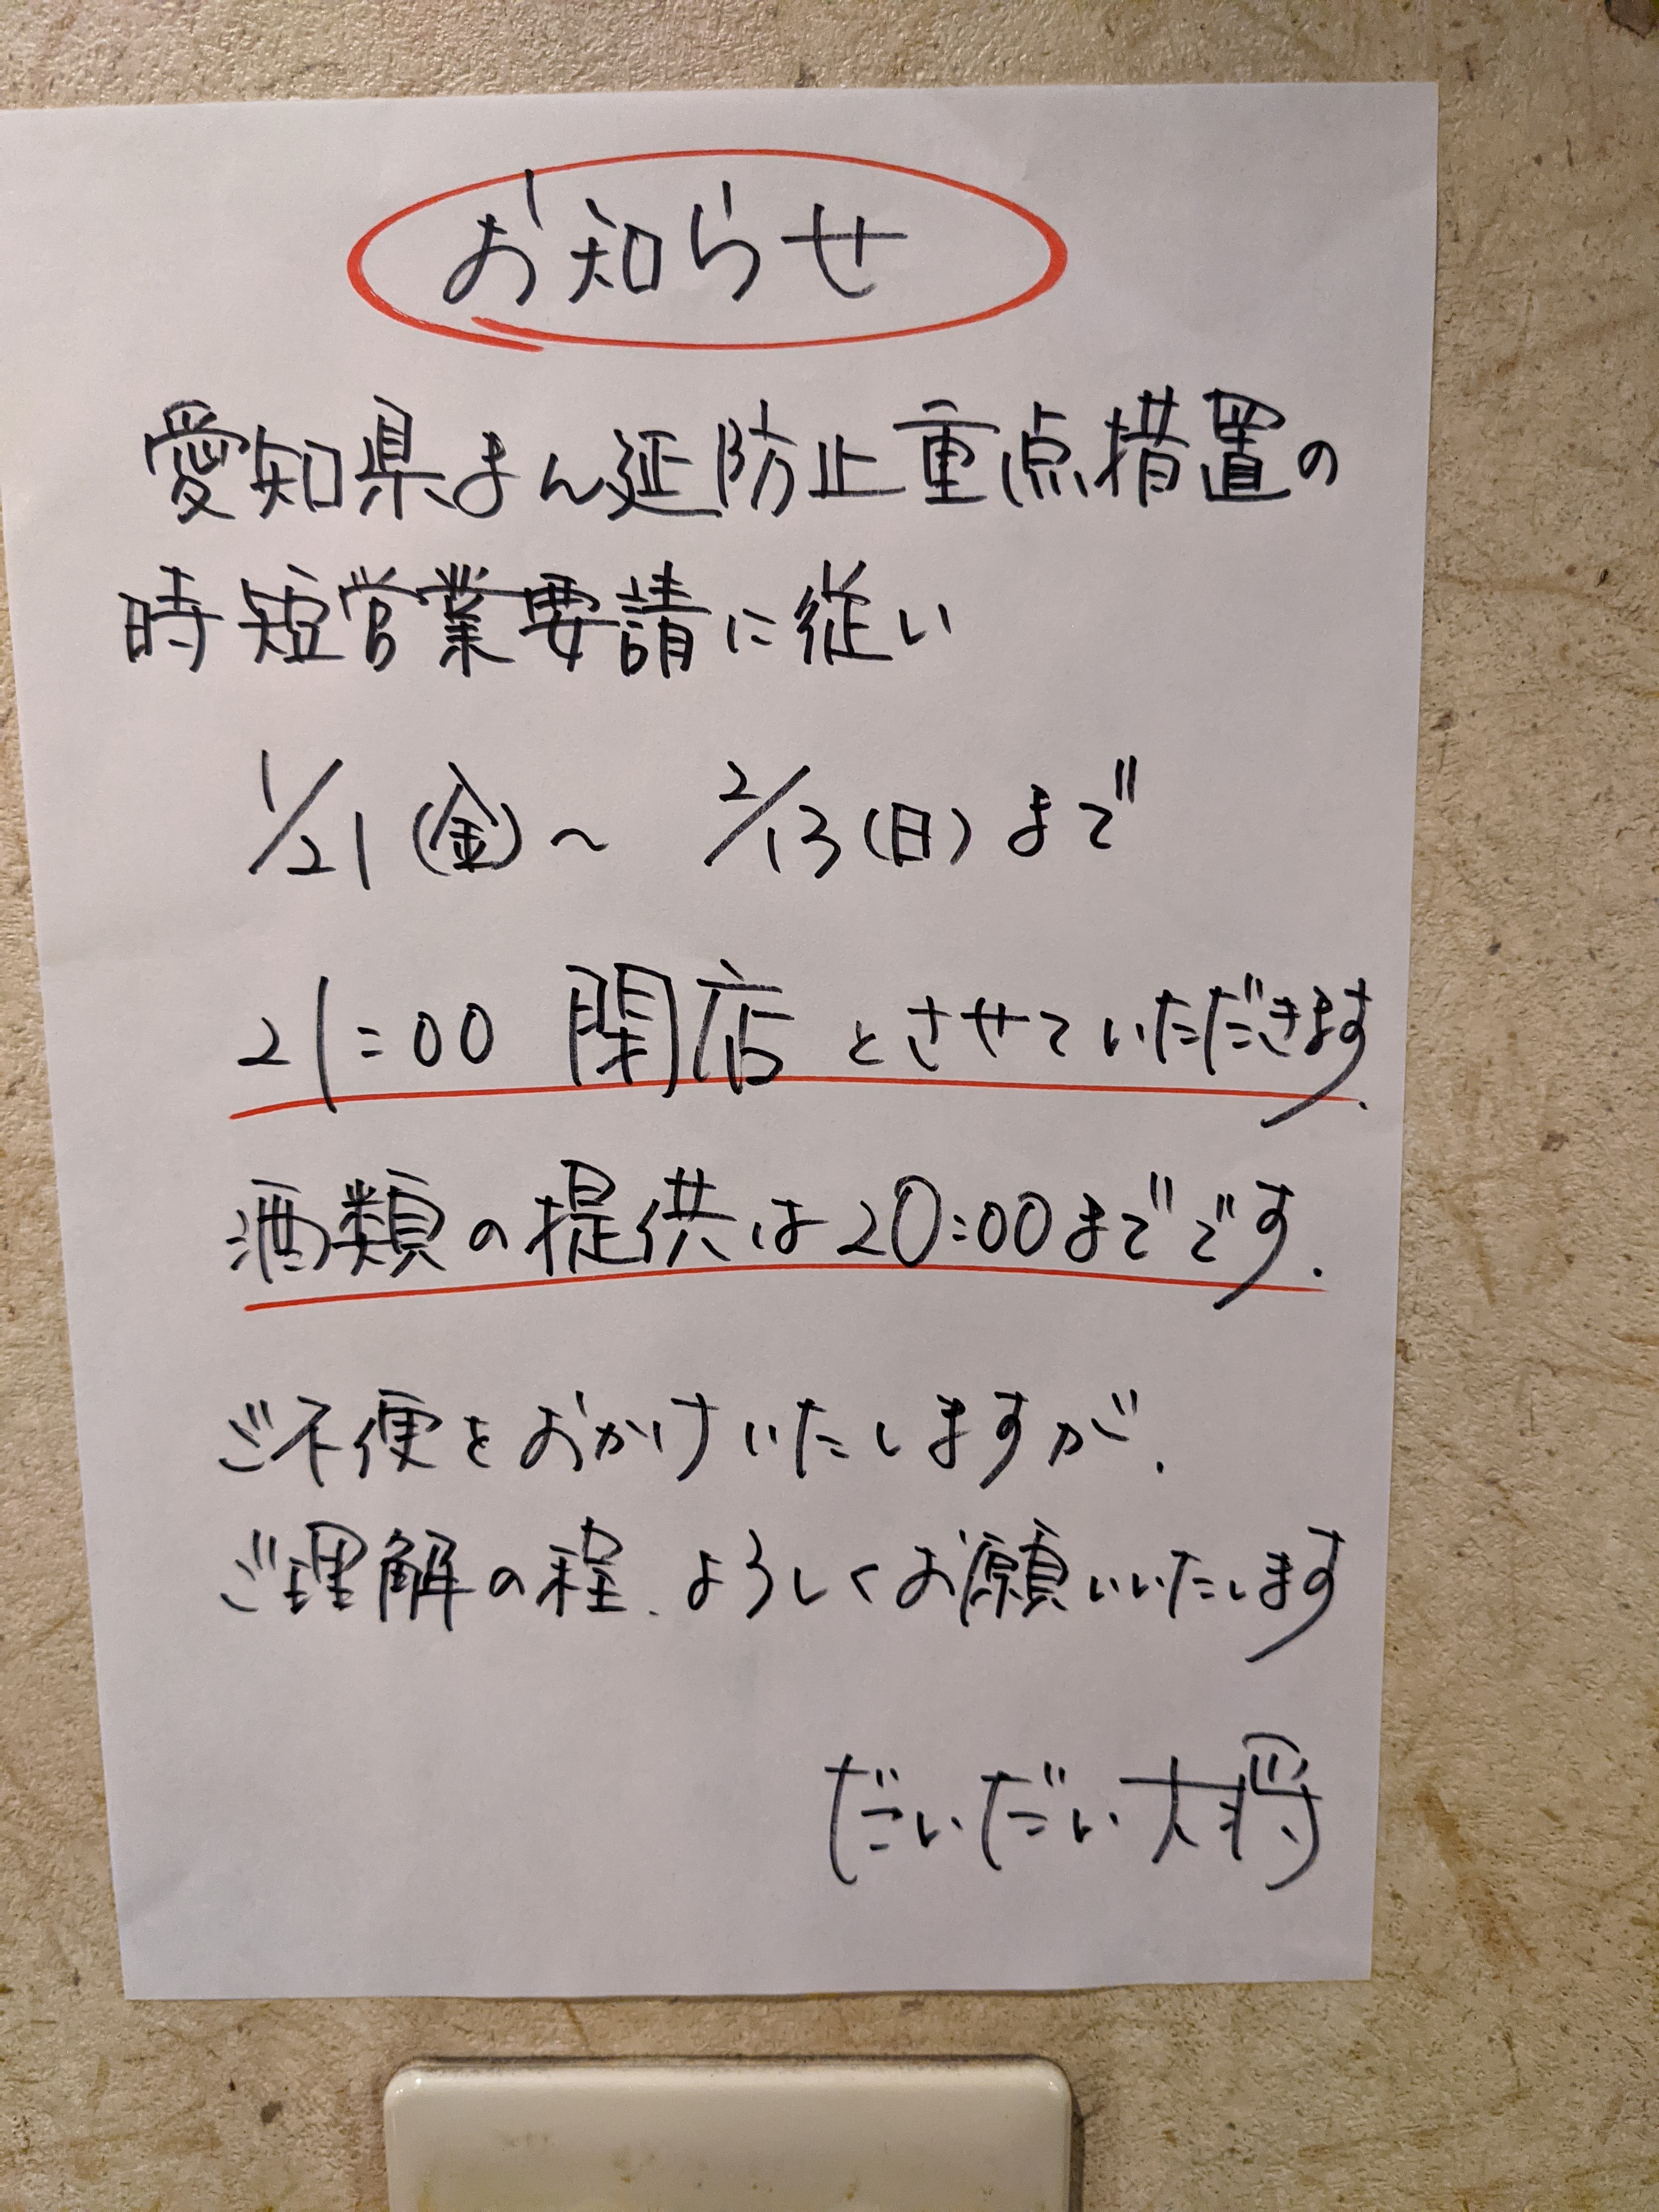 お知らせ
愛知県まん延防止重点措置の
時短営業要請に従い
1/21(金)～ 2/13(日)まで
21:00 閉店とさせていただきます.
酒類の提供は20:00までです.
ご不便をおかけいたしますが、
ご理解の程、よろしくお願いいたします
だいだい大将